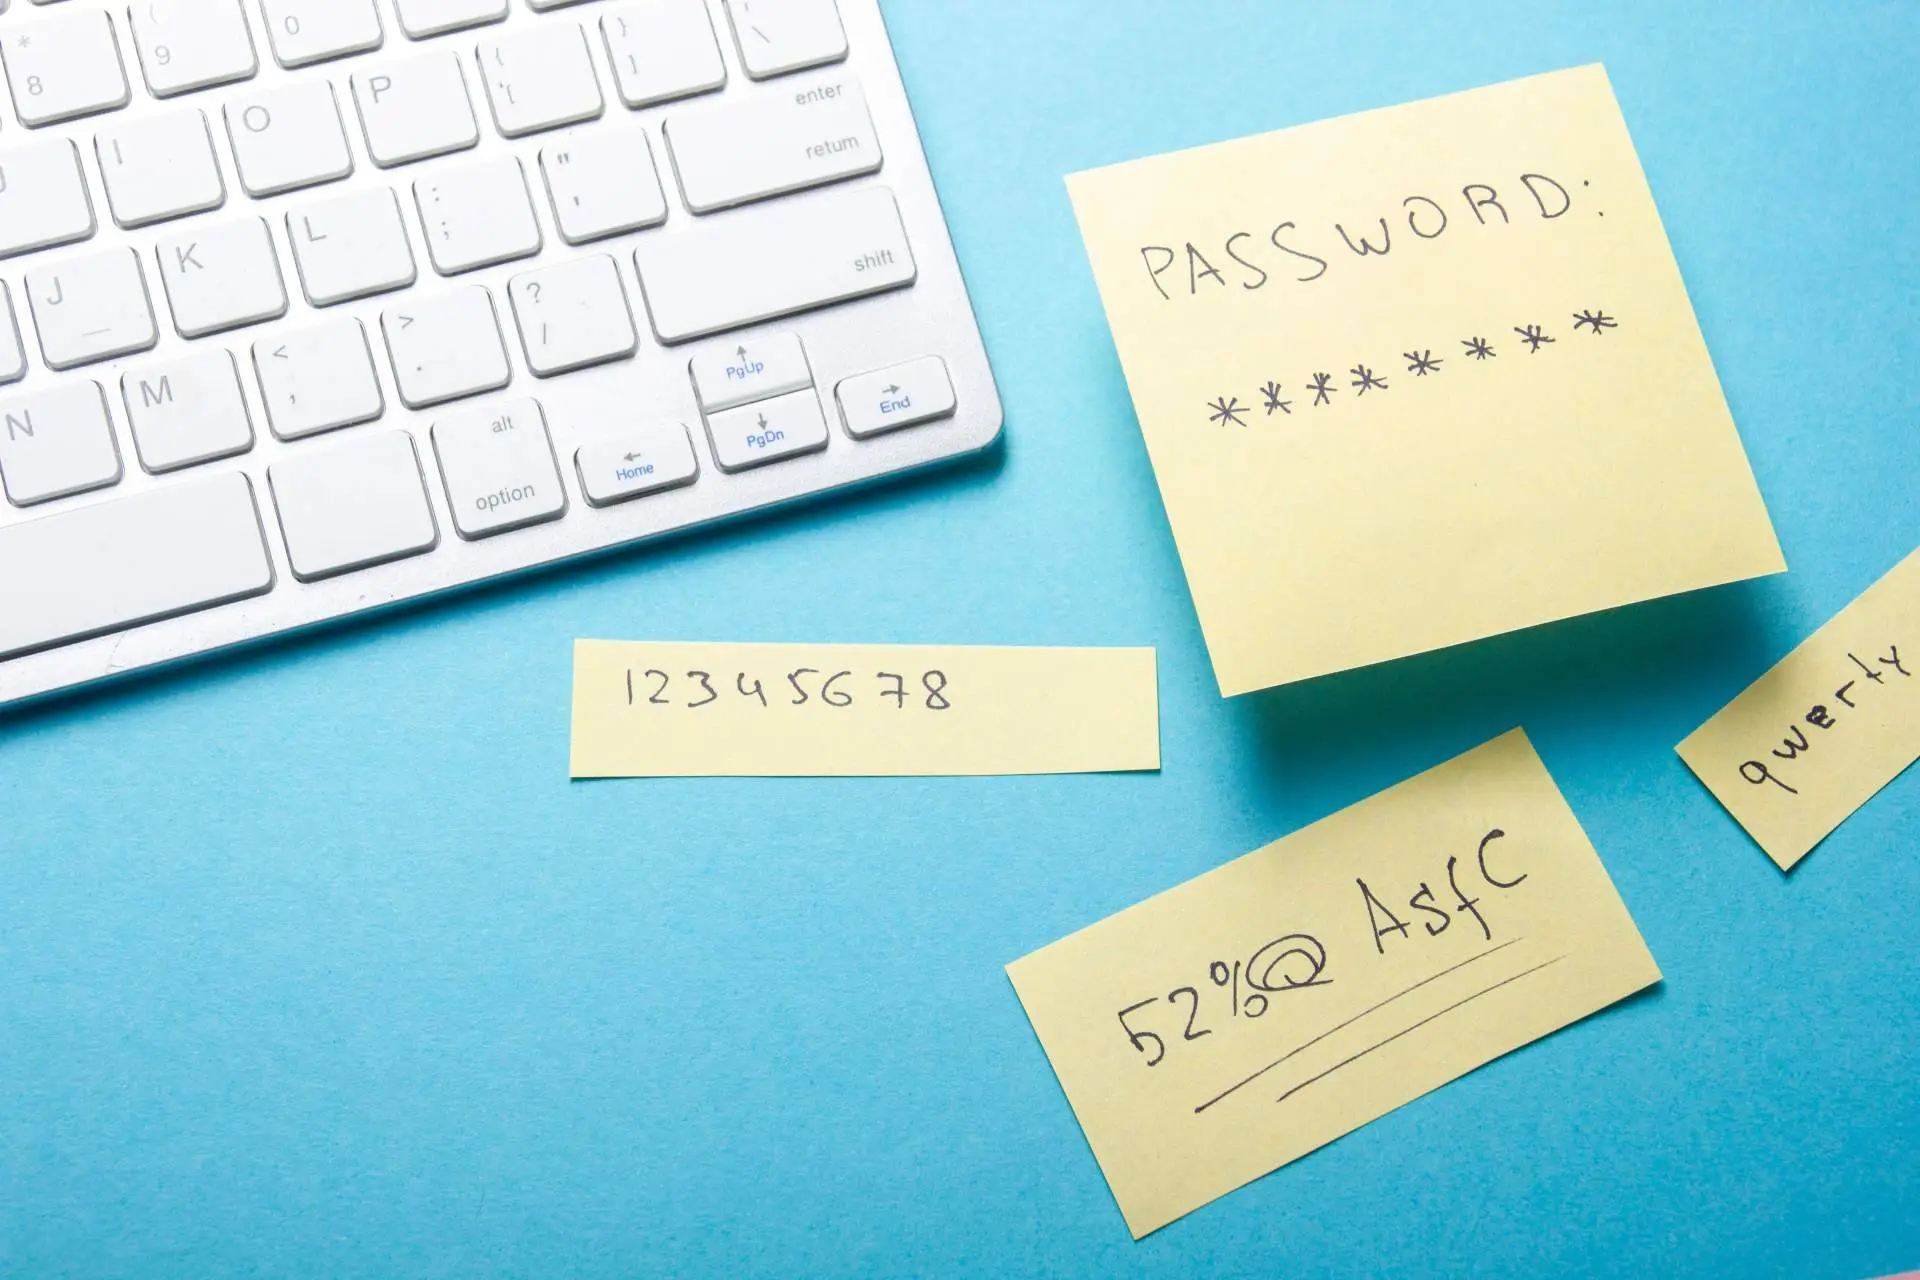 * ( 0
8 9
{ } |
[ ] \
I O P
enter
return
J K L : ; " '
shift
N M < , > . ? /
alt
option
Home
PgUp
PgDn
End
PASSWORD:
********
12345678
qwerty
52%@ AsfC